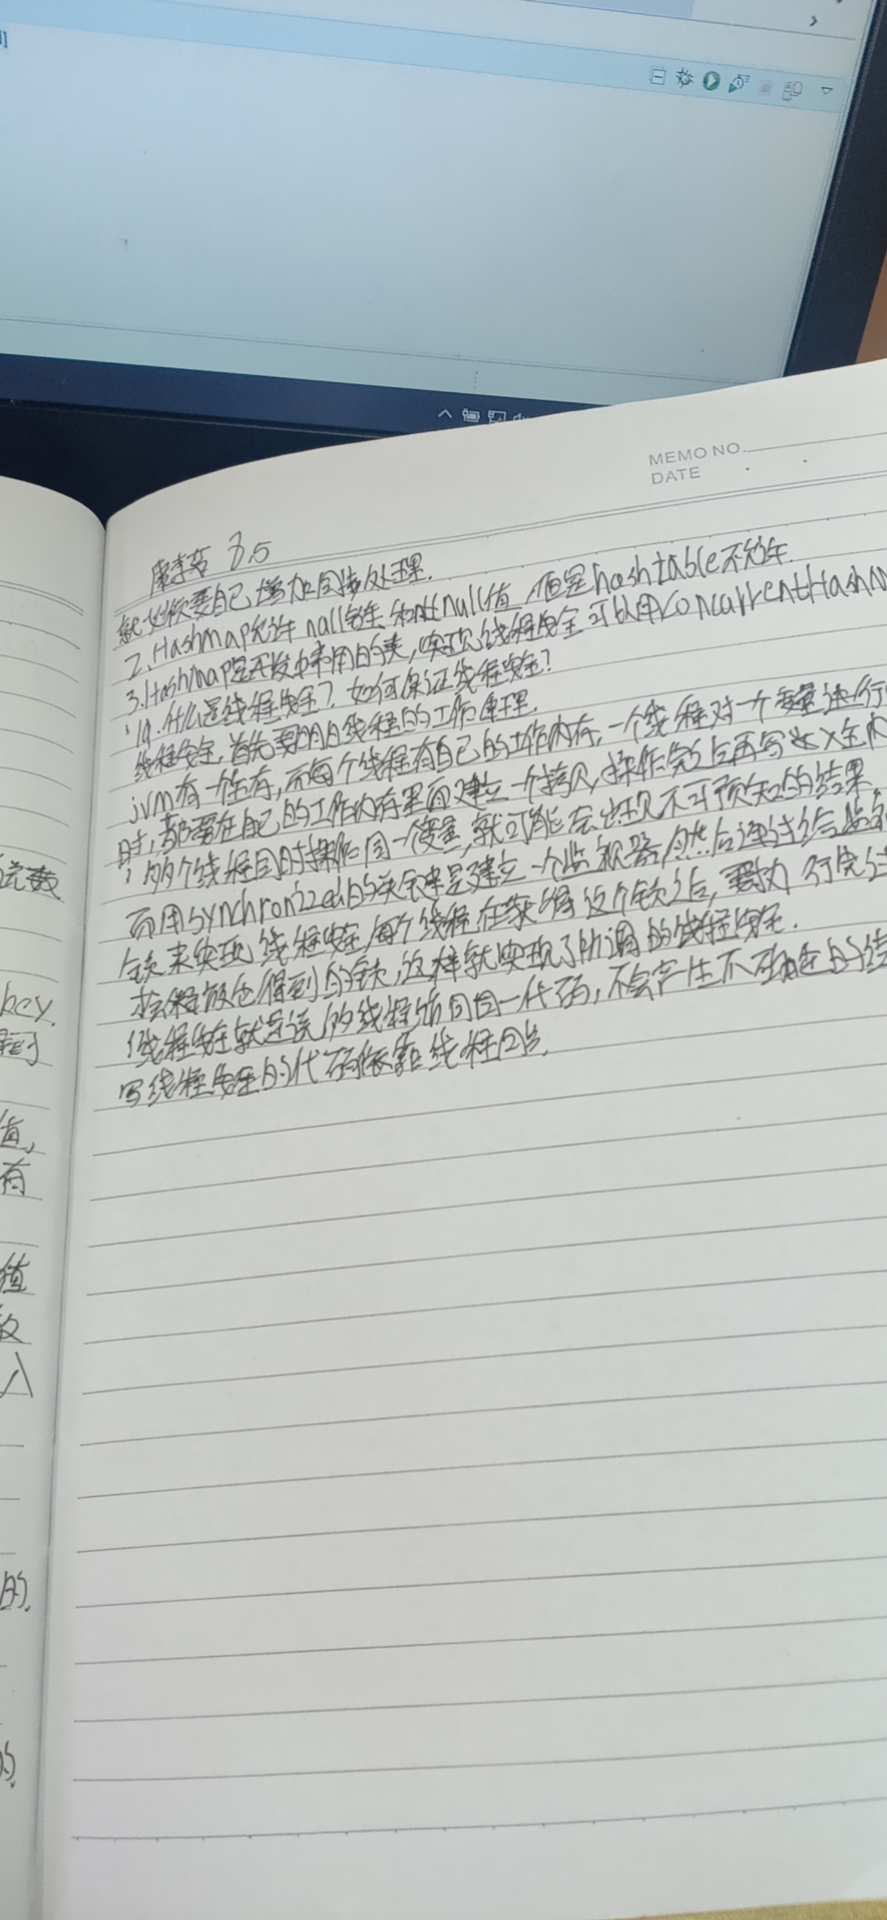 MEMO NO.
DATE
康 3.5
就必须要自己增加同步处理.
2.Hashmap允许null键和null值,但是hashtable不允许.
3.HashMap是开发中常用的类,实现线程安全可以用ConcurrentHashM
19.什么是线程安全?如何保证线程安全?
线程安全,首先要明白线程的工作原理.
jvm有一个主存,而每个线程有自己的工作内存,一个线程对一个变量进行
时,都要在自己的工作内存里面建立一个拷贝,操作完之后再写入主内
,两个线程同时操作同一个变量,就可能会出现不可预知的结果.
而用synchronized的关键是建立一个监视器,然后通过给监视
锁来实现线程安全,每个线程在获得这个锁之后,要执行完
释放它得到的锁,这样就实现了所谓的线程安全.
线程安全就是说的线程访问同一代码,不会产生不确定的结
写线程安全的代码依靠线程同步.
key.
值,
有
值
入
的.
的.